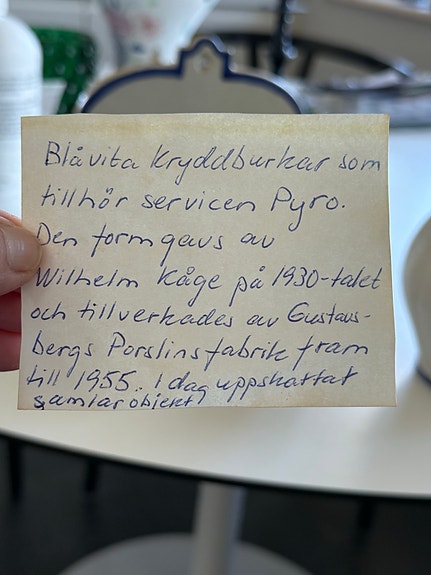 Blåvita Kryddburkar som
tillhör servicen Pyro.
Den formgavs av
Wilhelm Kåge på 1930-talet
och tillverkades av Gustavs-
bergs Porslinsfabrik fram
till 1955. I dag uppskattat
samlarobjekt